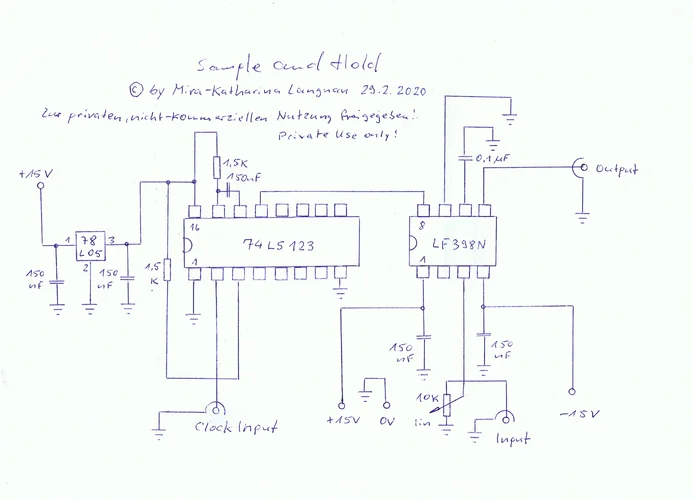 Sample and Hold
© by Mira-Katharina Langnau 29.2.2020
Zur privaten, nicht-kommerziellen Nutzung freigegeben!
Private Use only!
+15V
1,5K
150nF
0,1µF
Output
1
78
L05
3
2
16
74LS123
1
8
LF398N
1
150
nF
150
nF
1,5
K
150
nF
150
nF
10K
lin
+15V
0V
-15V
Clock Input
Input